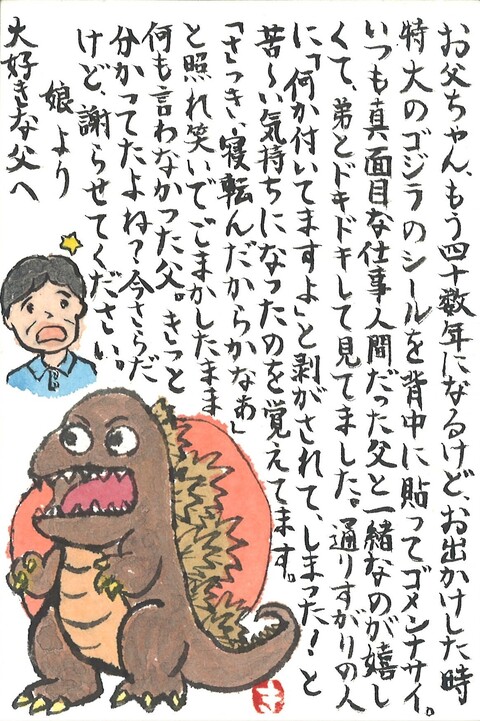 お父ちゃん、もう四十数年になるけど、お出かけした時
特大のゴジラのシールを背中に貼ってゴメンナサイ。
いつも真面目な仕事人間だった父と一緒なのが嬉し
くて、弟とドキドキして見てました。通りすがりの人
に「何か付いてますよ」と剥がされて、しまった!と
苦〜い気持ちになったのを覚えてます。
「さっき、寝転んだからかなぁ」
と照れ笑いでごまかしたまま
何も言わなかった父。きっと
分かってたよね?今さらだ
けど、謝らせてください。
娘より
大好きな父へ